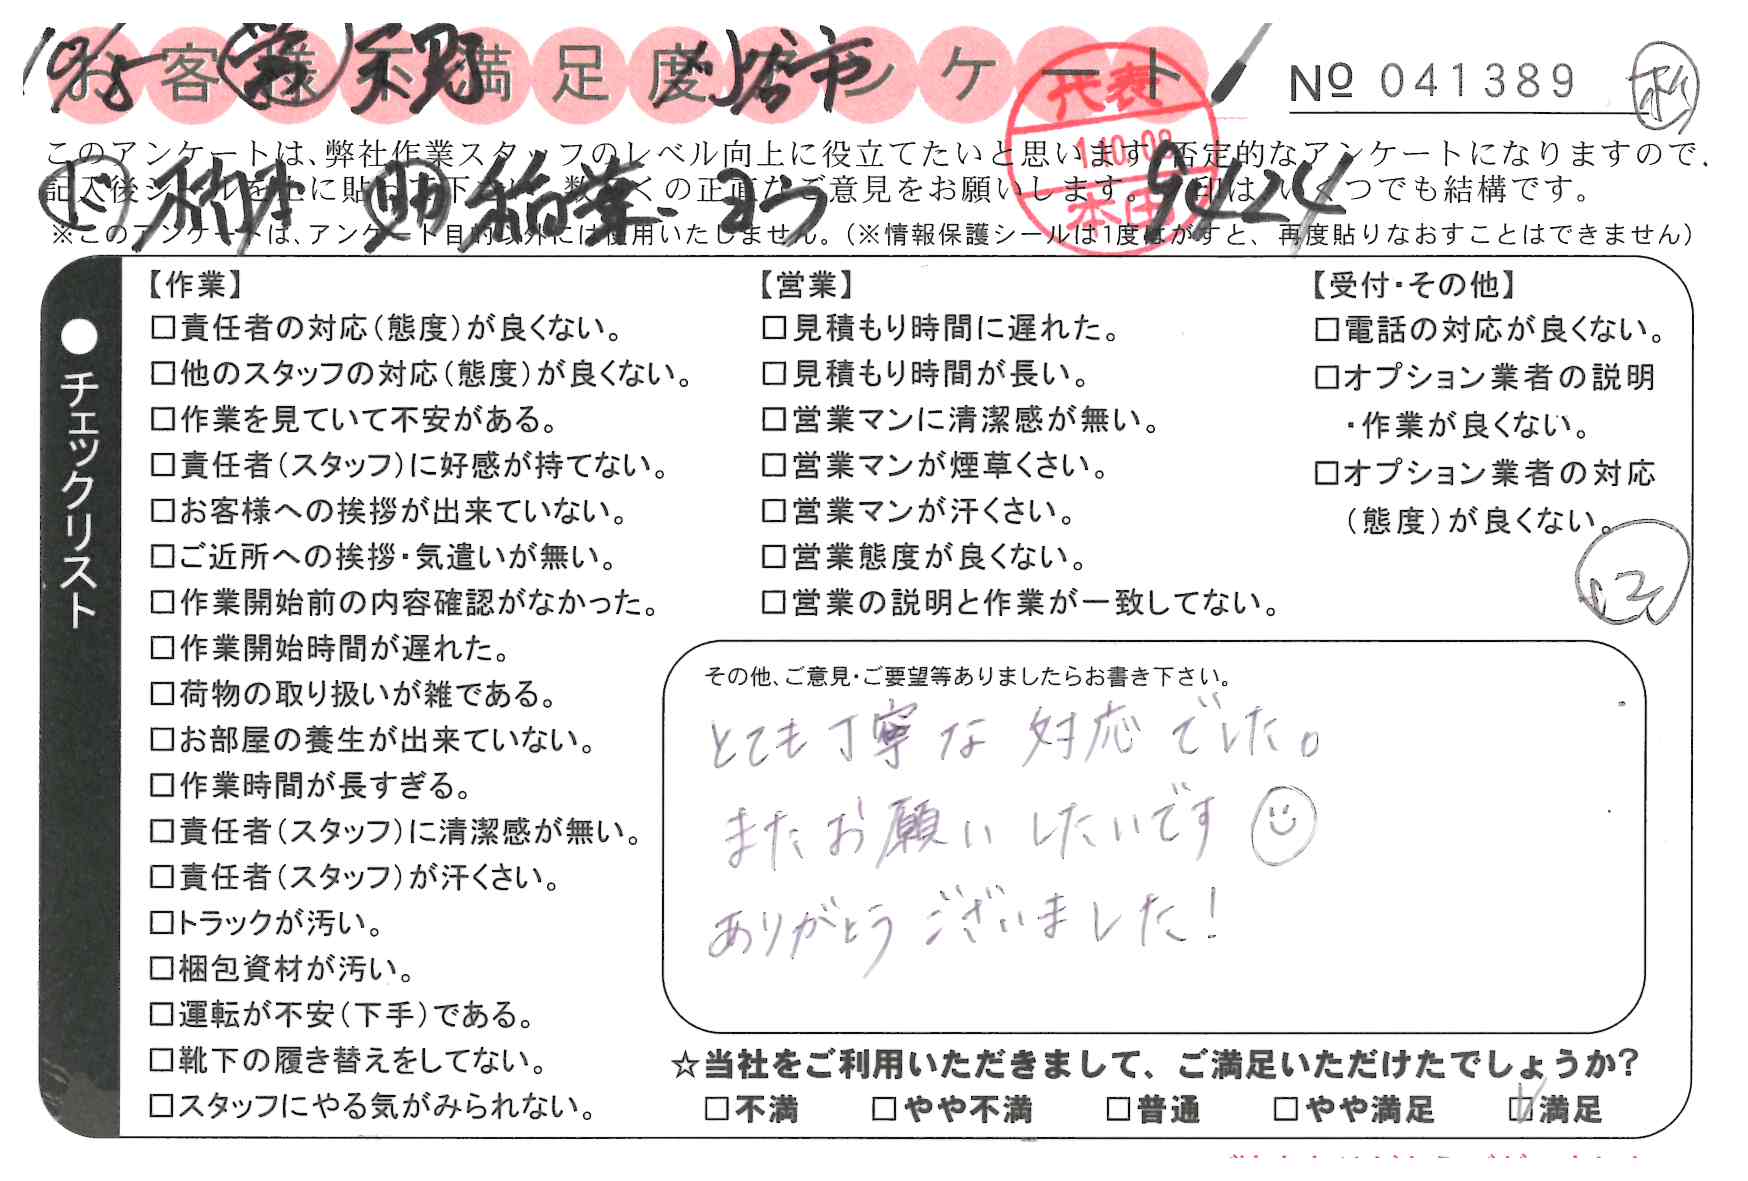 お客様不満足度アンケート
No 041389
代表
このアンケートは、弊社作業スタッフのレベル向上に役立てたいと思います。否定的なアンケートになりますので、
記入後シールを上に貼って下さい。数多くの正直なご意見をお願いします。 印は、いくつでも結構です。
※このアンケートは、アンケート目的以外には使用いたしません。(※情報保護シールは1度はがすと、再度貼りなおすことはできません)
9424
本田
●チェックリスト
【作業】
□責任者の対応(態度)が良くない。
□他のスタッフの対応(態度)が良くない。
□作業を見ていて不安がある。
□責任者(スタッフ)に好感が持てない。
□お客様への挨拶が出来ていない。
□ご近所への挨拶・気遣いが無い。
□作業開始前の内容確認がなかった。
□作業開始時間が遅れた。
□荷物の取り扱いが雑である。
□お部屋の養生が出来ていない。
□作業時間が長すぎる。
□責任者(スタッフ)に清潔感が無い。
□責任者(スタッフ)が汗くさい。
□トラックが汚い。
□梱包資材が汚い。
□運転が不安(下手)である。
□靴下の履き替えをしてない。
□スタッフにやる気がみられない。
【営業】
□見積もり時間に遅れた。
□見積もり時間が長い。
□営業マンに清潔感が無い。
□営業マンが煙草くさい。
□営業マンが汗くさい。
□営業態度が良くない。
□営業の説明と作業が一致してない。
【受付・その他】
□電話の対応が良くない。
□オプション業者の説明
・作業が良くない。
□オプション業者の対応
(態度)が良くない。
その他、ご意見・ご要望等ありましたらお書き下さい。
とても丁寧な対応でした。
またお願いしたいです
ありがとうございました!
☆当社をご利用いただきまして、ご満足いただけたでしょうか?
□不満 □やや不満 □普通 □やや満足 □満足